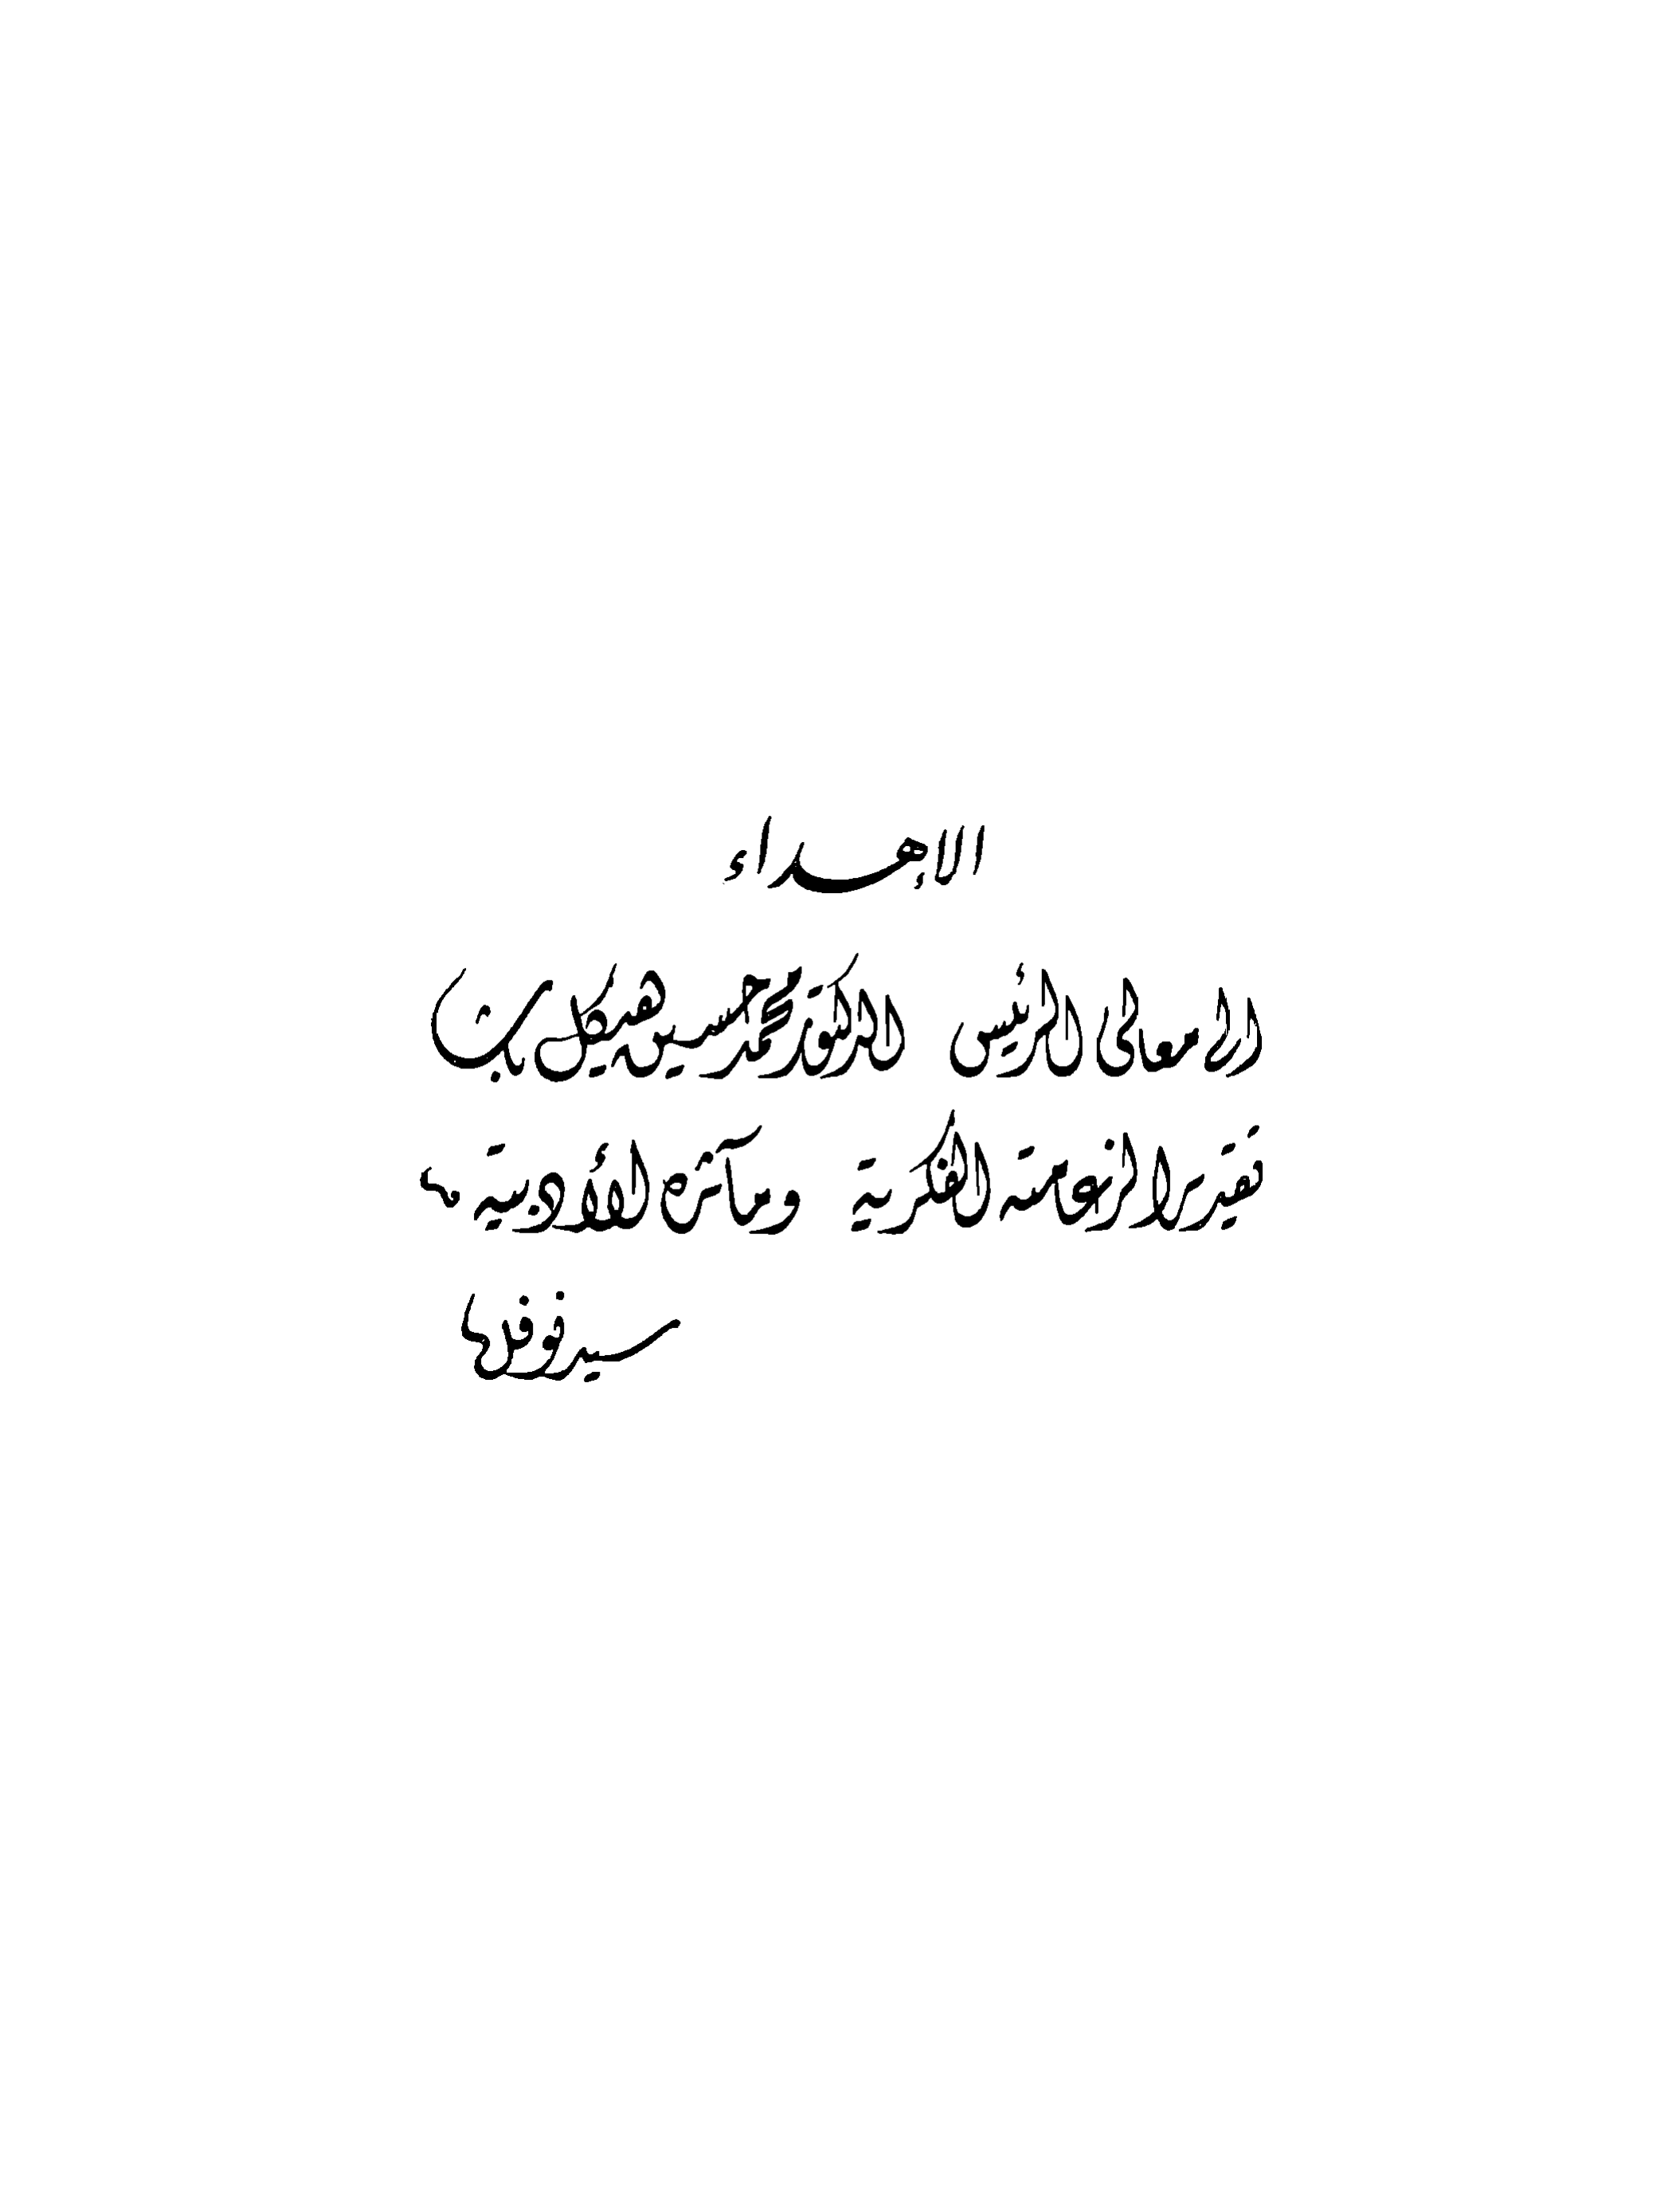 الإهداء
إلى معالى الرئيس الدكتور محمد حسين هيكل باشا
تقديرا لزعامته الفكرية ومآثره الأدبية
سيد نوفل